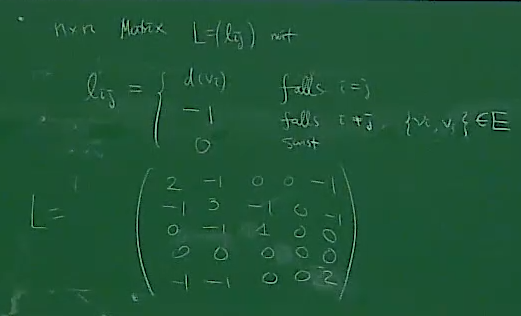 n×n Matrix L=(lij) mit
lij = { d(vi) falls i=j
-1 falls i≠j, {vi, vj} ∈ E
0 sonst
L = ( 2 -1 0 0 -1
-1 3 -1 0 -1
0 -1 1 0 0
0 0 0 0 0
-1 -1 0 0 2 )